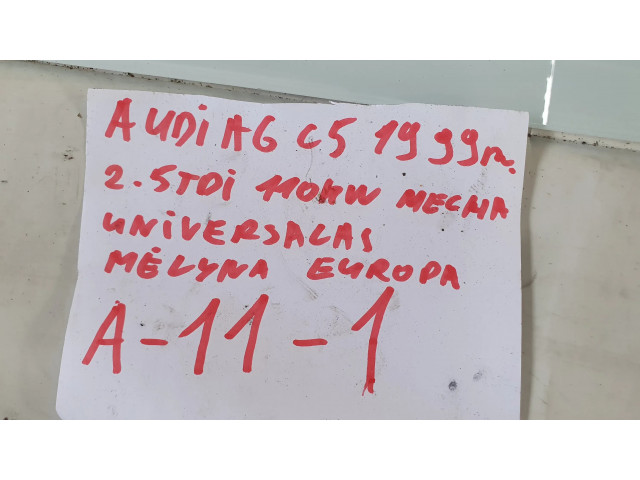 AUDI A6 C5 1999m.
2.5TDI 110KW MECHA
UNIVERSALAS
MĖLYNA EUROPA
A-11-1